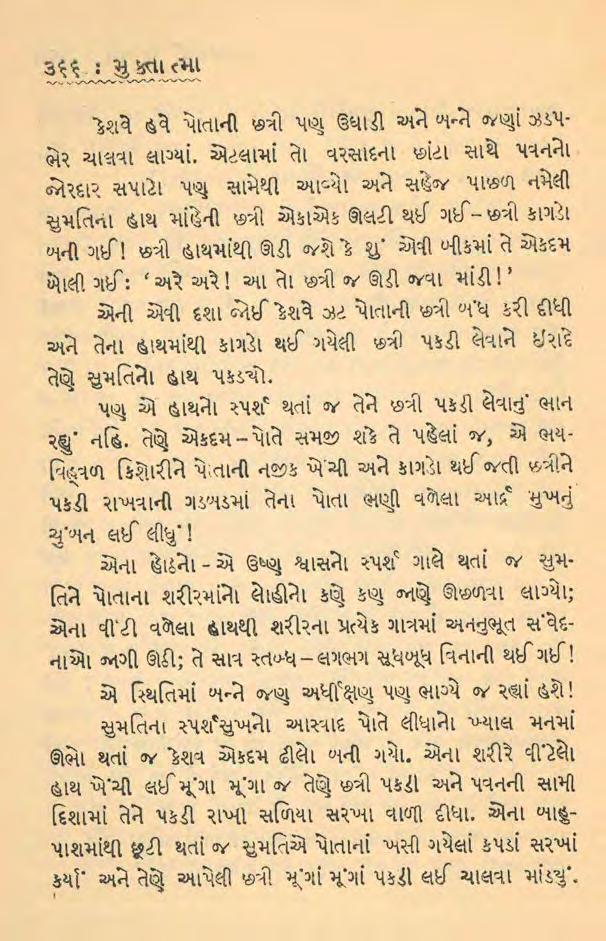 ૩૬૬ : મુક્તાત્મા
કેશવે હવે પોતાની છત્રી પણ ઉઘાડી અને બન્ને જણાં ઝડપ-
ભેર ચાલવા લાગ્યાં. એટલામાં તો વરસાદના છાંટા સાથે પવનનો
જોરદાર સપાટો પણ સામેથી આવ્યો અને સહેજ પાછળ નમેલી
સુમતિના હાથ માંહેની છત્રી એકાએક ઊલટી થઈ ગઈ – છત્રી કાગડો
બની ગઈ! છત્રી હાથમાંથી ઊડી જશે કે શું એવી બીકમાં તે એકદમ
બોલી ગઈ: ‘અરે અરે! આ તો છત્રી જ ઊડી જવા માંડી!’
એની એવી દશા જોઈ કેશવે ઝટ પોતાની છત્રી બંધ કરી દીધી
અને તેના હાથમાંથી કાગડો થઈ ગયેલી છત્રી પકડી લેવાને ઈરાદે
તેણે સુમતિનો હાથ પકડ્યો.
પણ એ હાથનો સ્પર્શ થતાં જ તેને છત્રી પકડી લેવાનું ભાન
રહ્યું નહિ. તેણે એકદમ – પોતે સમજી શકે તે પહેલાં જ, એ ભય-
વિહ્વળ કિશોરીને પોતાની નજીક ખેંચી અને કાગડો થઈ જતી છત્રીને
પકડી રાખવાની ગડબડમાં તેના પોતા ભણી વળેલા આર્દ્ર મુખનું
ચુંબન લઈ લીધું!
એના હોઠનો – એ ઉષ્ણ શ્વાસનો સ્પર્શ ગાલે થતાં જ સુમ-
તિને પોતાના શરીરમાંનો લોહીનો કણે કણ જાણે ઊછળવા લાગ્યો;
એના વીંટી વળેલા હાથથી શરીરના પ્રત્યેક ગાત્રમાં અનનુભૂત સંવેદ-
નાઓ જાગી ઊઠી; તે સાવ સ્તબ્ધ – લગભગ સૂધબૂધ વિનાની થઈ ગઈ!
એ સ્થિતિમાં બન્ને જણ અર્ધીક્ષણ પણ ભાગ્યે જ રહ્યાં હશે!
સુમતિના સ્પર્શસુખનો આસ્વાદ પોતે લીધાનો ખ્યાલ મનમાં
ઊભો થતાં જ કેશવ એકદમ ઢીલો બની ગયો. એના શરીરે વીંટેલો
હાથ ખેંચી લઈ મૂંગા મૂંગા જ તેણે છત્રી પકડી અને પવનની સામી
દિશામાં તેને પકડી રાખી સળિયા સરખા વાળી દીધા. એના બાહુ-
પાશમાંથી છૂટી થતાં જ સુમતિએ પોતાનાં ખસી ગયેલાં કપડાં સરખાં
કર્યાં અને તેણે આપેલી છત્રી મૂંગાં મૂંગાં પકડી લઈ ચાલવા માંડ્યું.